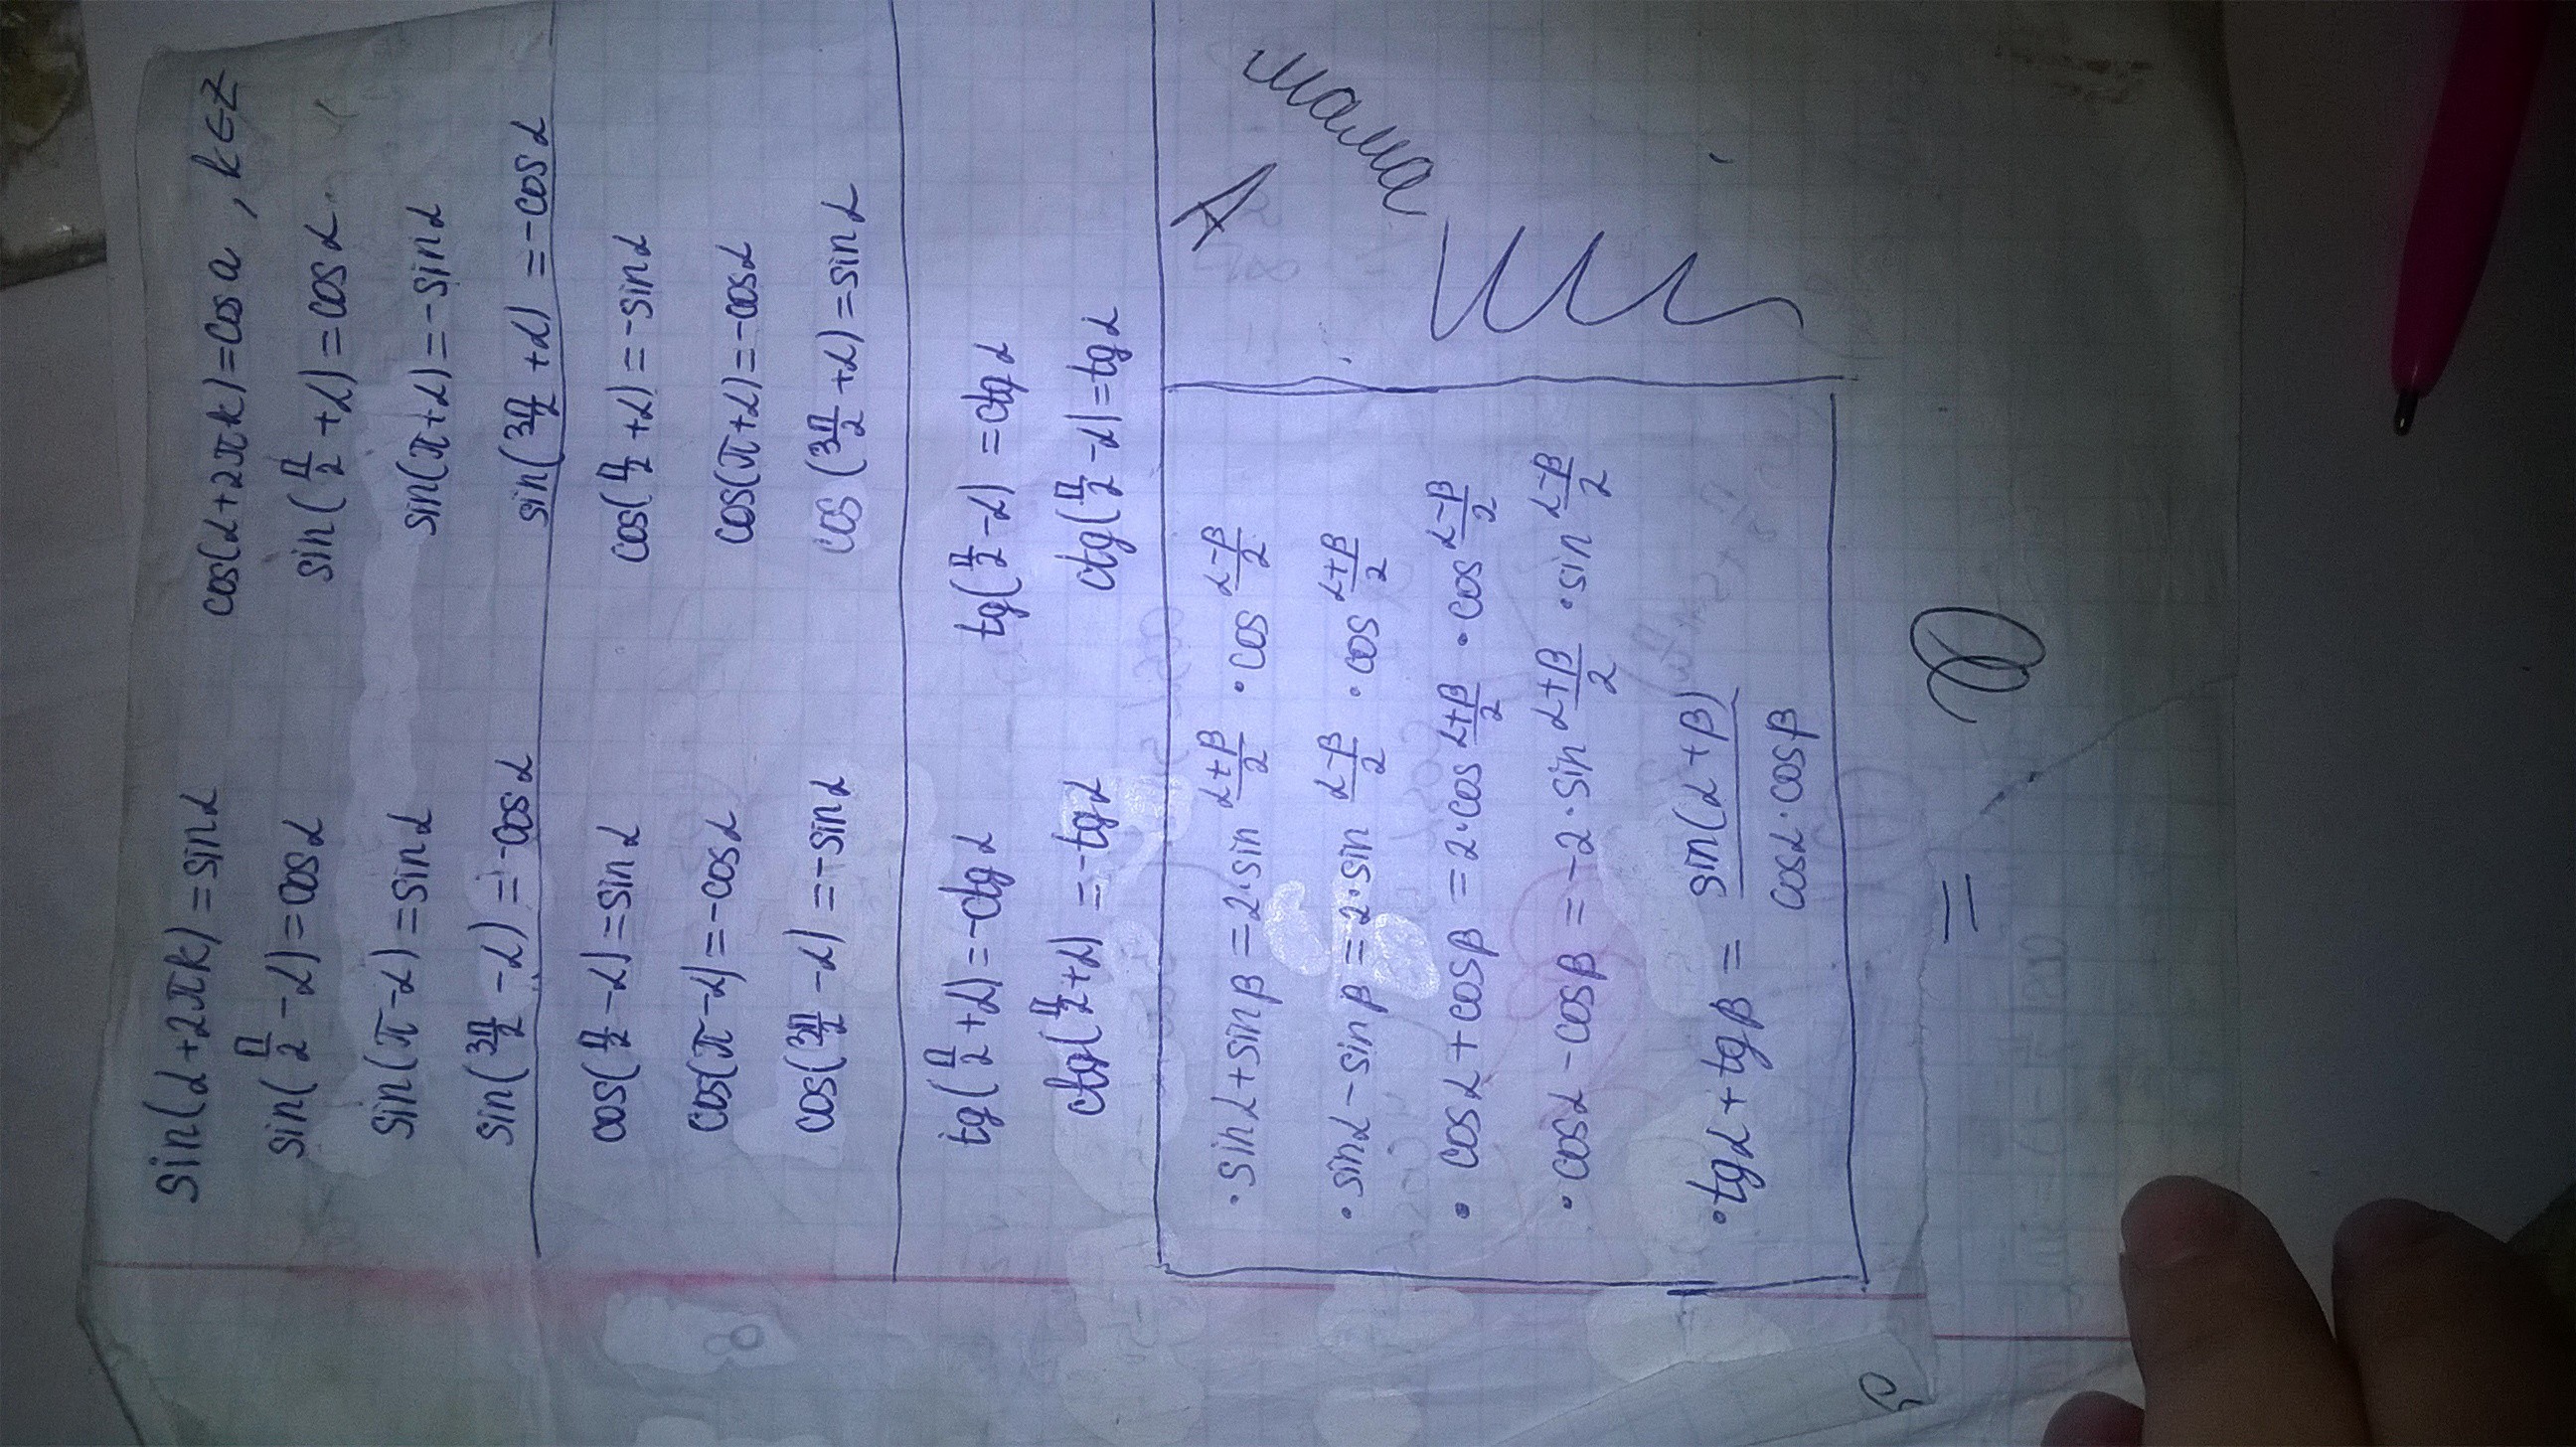 sin(α+2πk)=sinα cos(α+2πk)=cos a, k∈Z
sin(π/2-α)=cosα sin(π/2+α)=cosα
sin(π-α)=sinα sin(π+α)=-sinα
sin(3π/2-α)=-cosα sin(3π/2+α)=-cosα
cos(π/2-α)=sinα cos(π/2+α)=-sinα
cos(π-α)=-cosα cos(π+α)=-cosα
cos(3π/2-α)=-sinα cos(3π/2+α)=sinα
tg(π/2+α)=-ctgα tg(π/2-α)=ctgα
ctg(π/2+α)=-tgα ctg(π/2-α)=tgα
• sinα+sinβ=2·sin (α+β)/2 · cos (α-β)/2
• sinα-sinβ=2·sin (α-β)/2 · cos (α+β)/2
• cosα+cosβ=2·cos (α+β)/2 · cos (α-β)/2
• cosα-cosβ=-2·sin (α+β)/2 · sin (α-β)/2
• tgα+tgβ= sin(α+β)/(cosα·cosβ)
А
мама